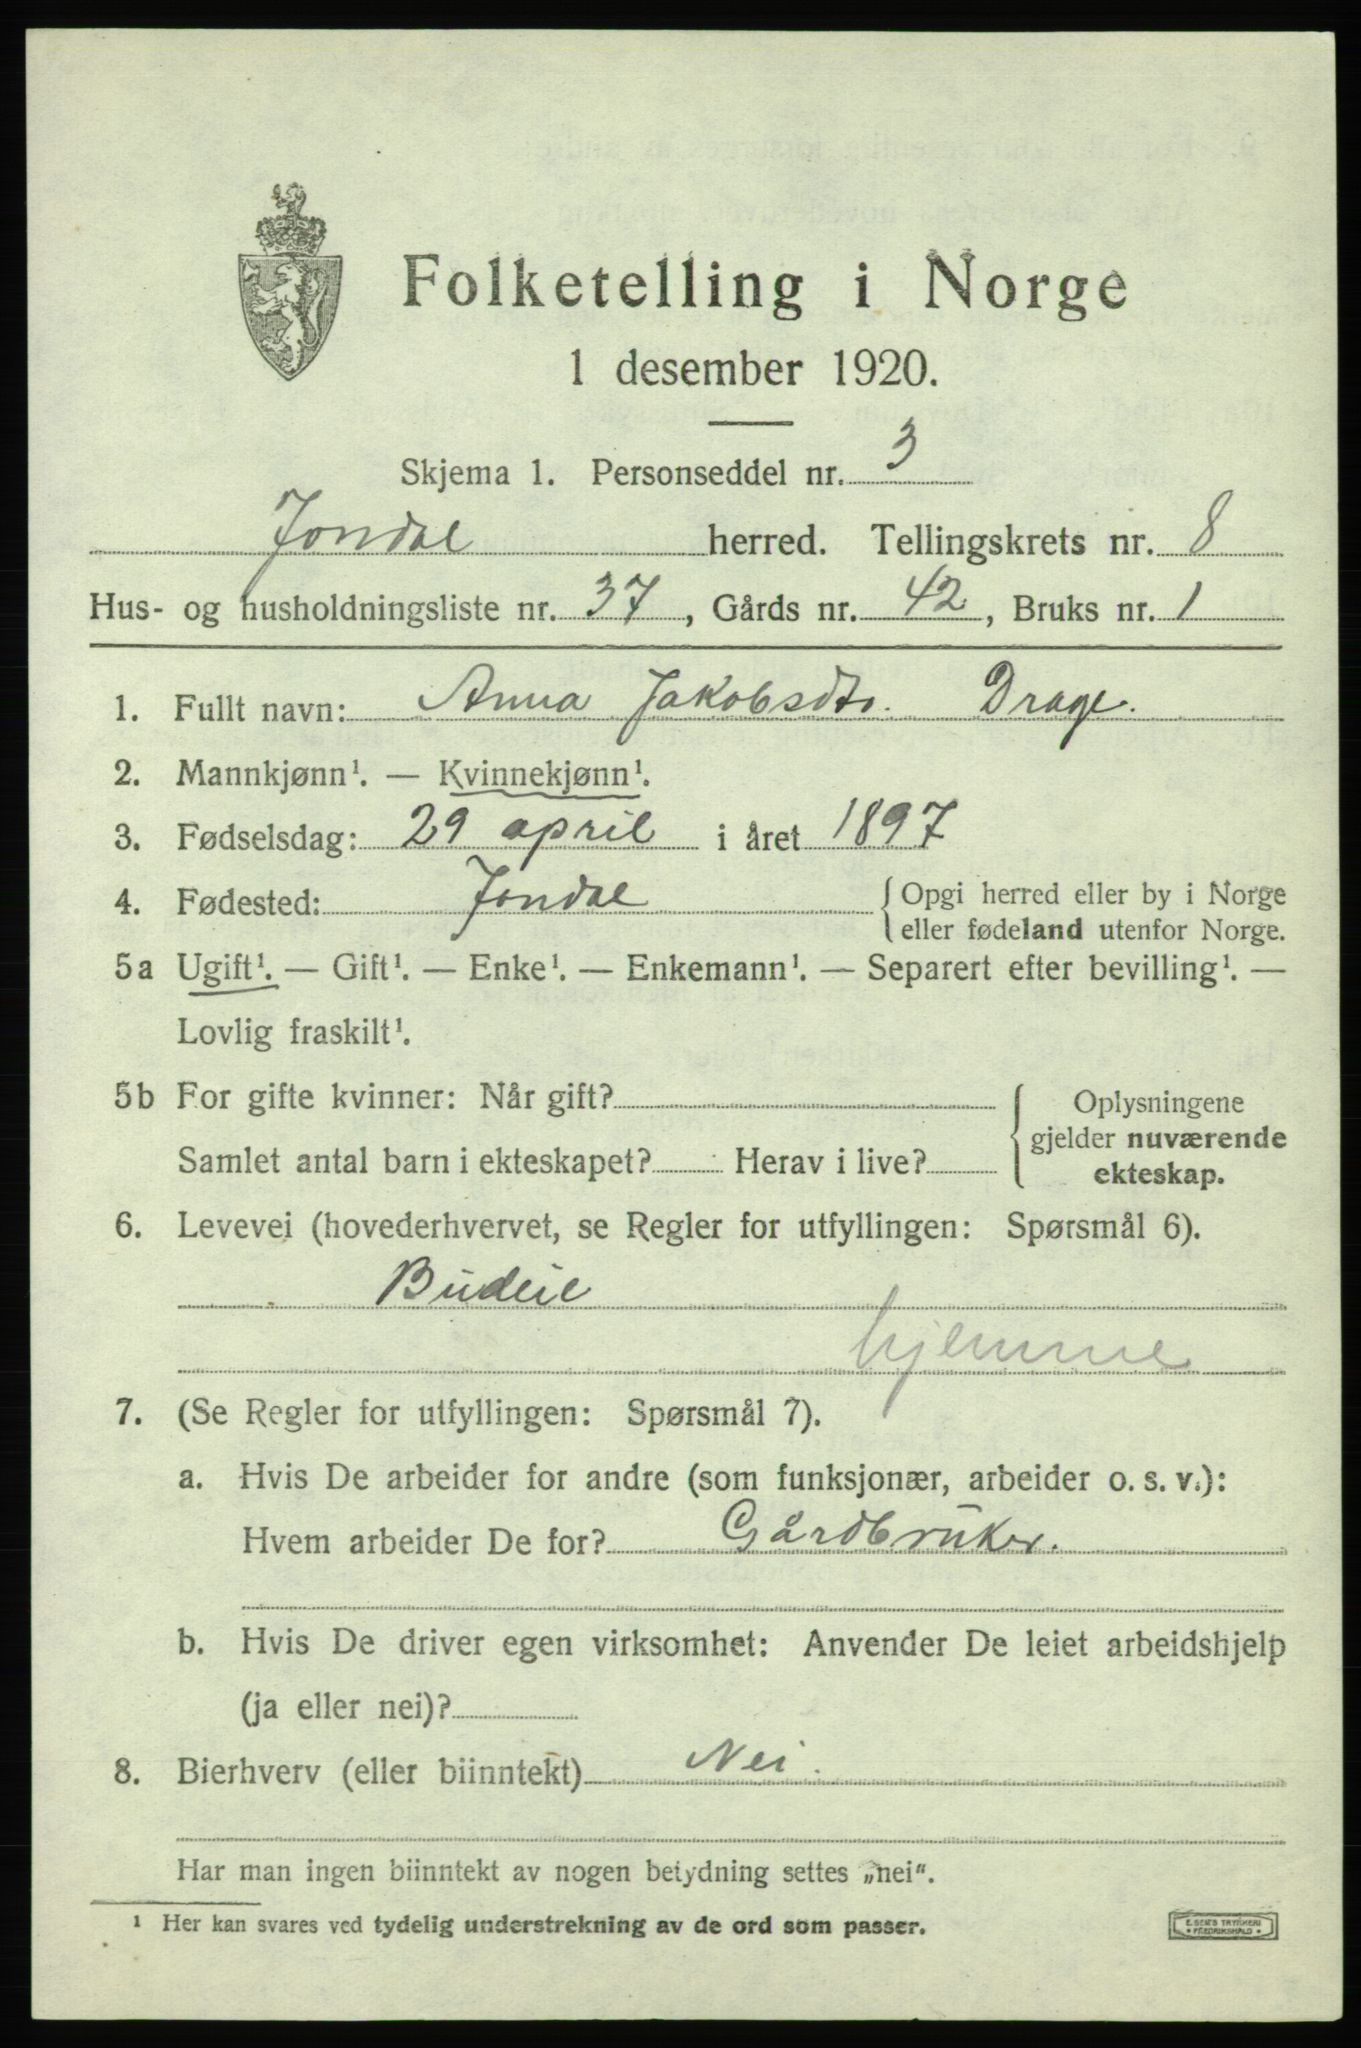 Folketelling i Norge
1 desember 1920.
Skjema 1. Personseddel nr. 3
Jondal herred. Tellingskrets nr. 8
Hus- og husholdningsliste nr. 37, Gårds nr. 42, Bruks nr. 1
1. Fullt navn: Anna Jakobsdtr. Drage.
2. Mannkjønn¹. — Kvinnekjønn¹.
3. Fødselsdag: 29 april i året 1897
4. Fødested: Jondal {Opgi herred eller by i Norge
eller fødeland utenfor Norge.
5a Ugift¹. — Gift¹. — Enke¹. — Enkemann¹. — Separert efter bevilling¹. —
Lovlig fraskilt¹.
5b For gifte kvinner: Når gift? Oplysningene
gjelder nuværende
Samlet antal barn i ekteskapet? Herav i live? ekteskap.
6. Levevei (hovederhvervet, se Regler for utfyllingen: Spørsmål 6).
Budeie
hjemme
7. (Se Regler for utfyllingen: Spørsmål 7).
a. Hvis De arbeider for andre (som funksjonær, arbeider o. s. v.):
Hvem arbeider De for? Gårdbruker.
b. Hvis De driver egen virksomhet: Anvender De leiet arbeidshjelp
(ja eller nei)?
8. Bierhverv (eller biinntekt) Nei.
Har man ingen biinntekt av nogen betydning settes „nei“.
¹ Her kan svares ved tydelig understrekning av de ord som passer.
E. SEM'S TRYKKERI
• FREDRIKSHALD •